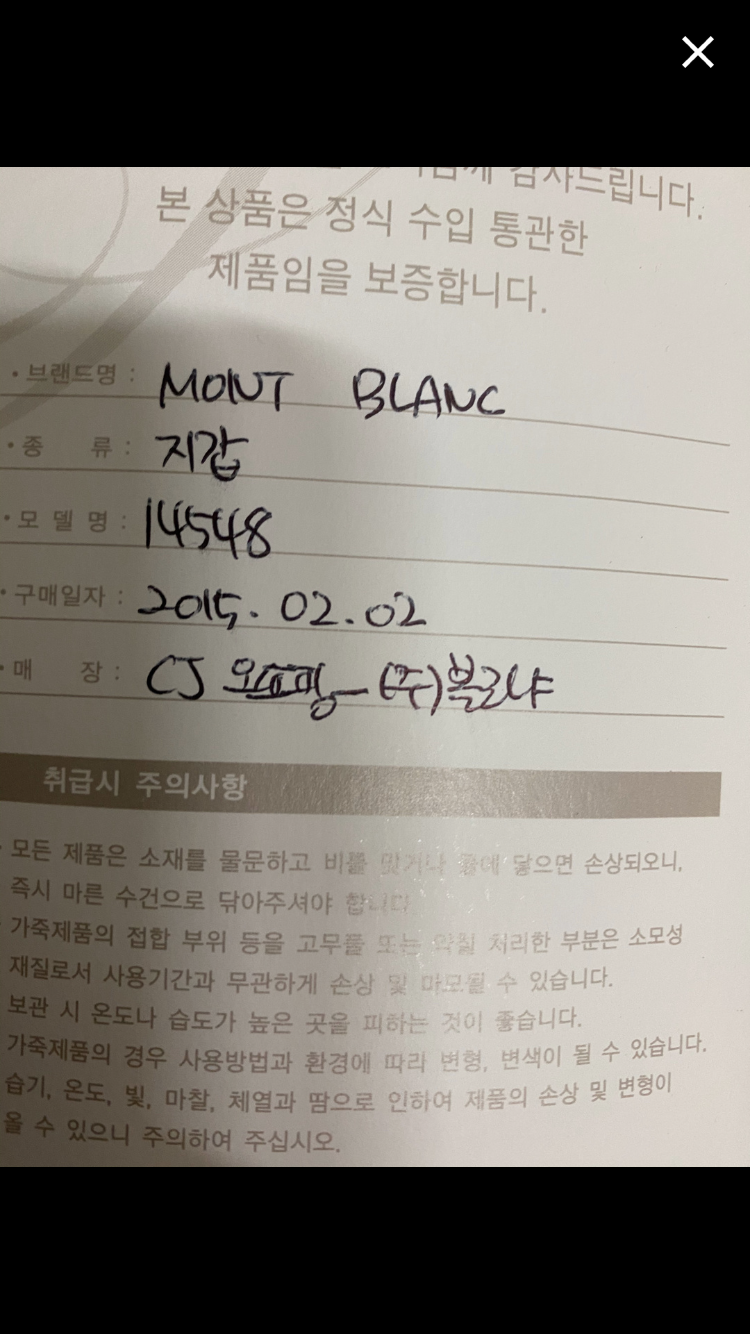 감사드립니다.
본 상품은 정식 수입 통관한
제품임을 보증합니다.
• 브랜드명 : MONT BLANC
• 종 류 : 지갑
• 모 델 명 : 14548
• 구매일자 : 2015. 02. 02
• 매 장 : CJ 오쇼핑 (주)볼로냐
취급시 주의사항
모든 제품은 소재를 물문하고 비를 맞거나 물에 닿으면 손상되오니,
즉시 마른 수건으로 닦아주셔야 합니다.
가죽제품의 접합 부위 등을 고무풀 또는 약칠 처리한 부분은 소모성
재질로서 사용기간과 무관하게 손상 및 마모될 수 있습니다.
보관 시 온도나 습도가 높은 곳을 피하는 것이 좋습니다.
가죽제품의 경우 사용방법과 환경에 따라 변형, 변색이 될 수 있습니다.
습기, 온도, 빛, 마찰, 체열과 땀으로 인하여 제품의 손상 및 변형이
올 수 있으니 주의하여 주십시오.